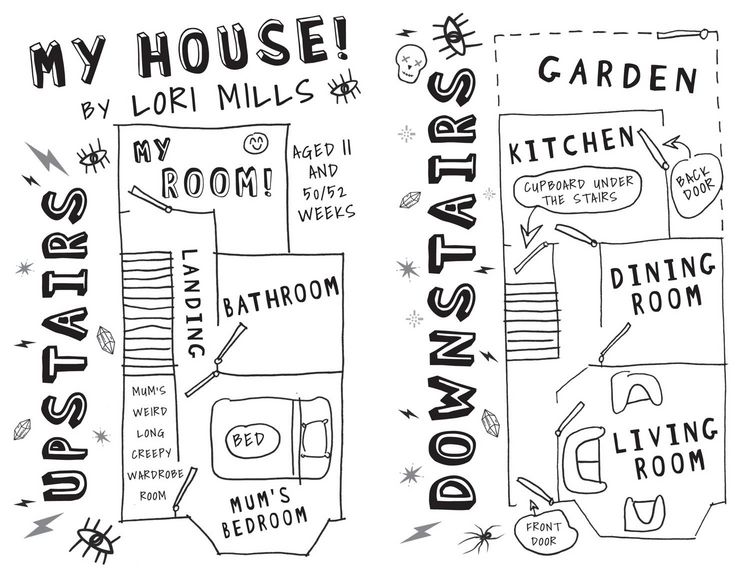 MY HOUSE!
BY LORI MILLS
UPSTAIRS
MY
ROOM!
AGED 11
AND
50/52
WEEKS
LANDING
BATHROOM
MUM'S
WEIRD
LONG
CREEPY
WARDROBE
ROOM
BED
MUM'S
BEDROOM
DOWNSTAIRS
GARDEN
KITCHEN
BACK
DOOR
CUPBOARD UNDER
THE STAIRS
DINING
ROOM
LIVING
ROOM
FRONT
DOOR